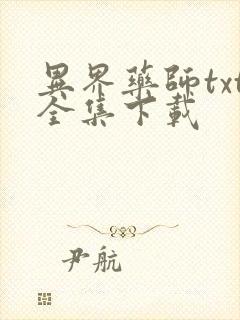 異界藥師txt
全集下載
尹航